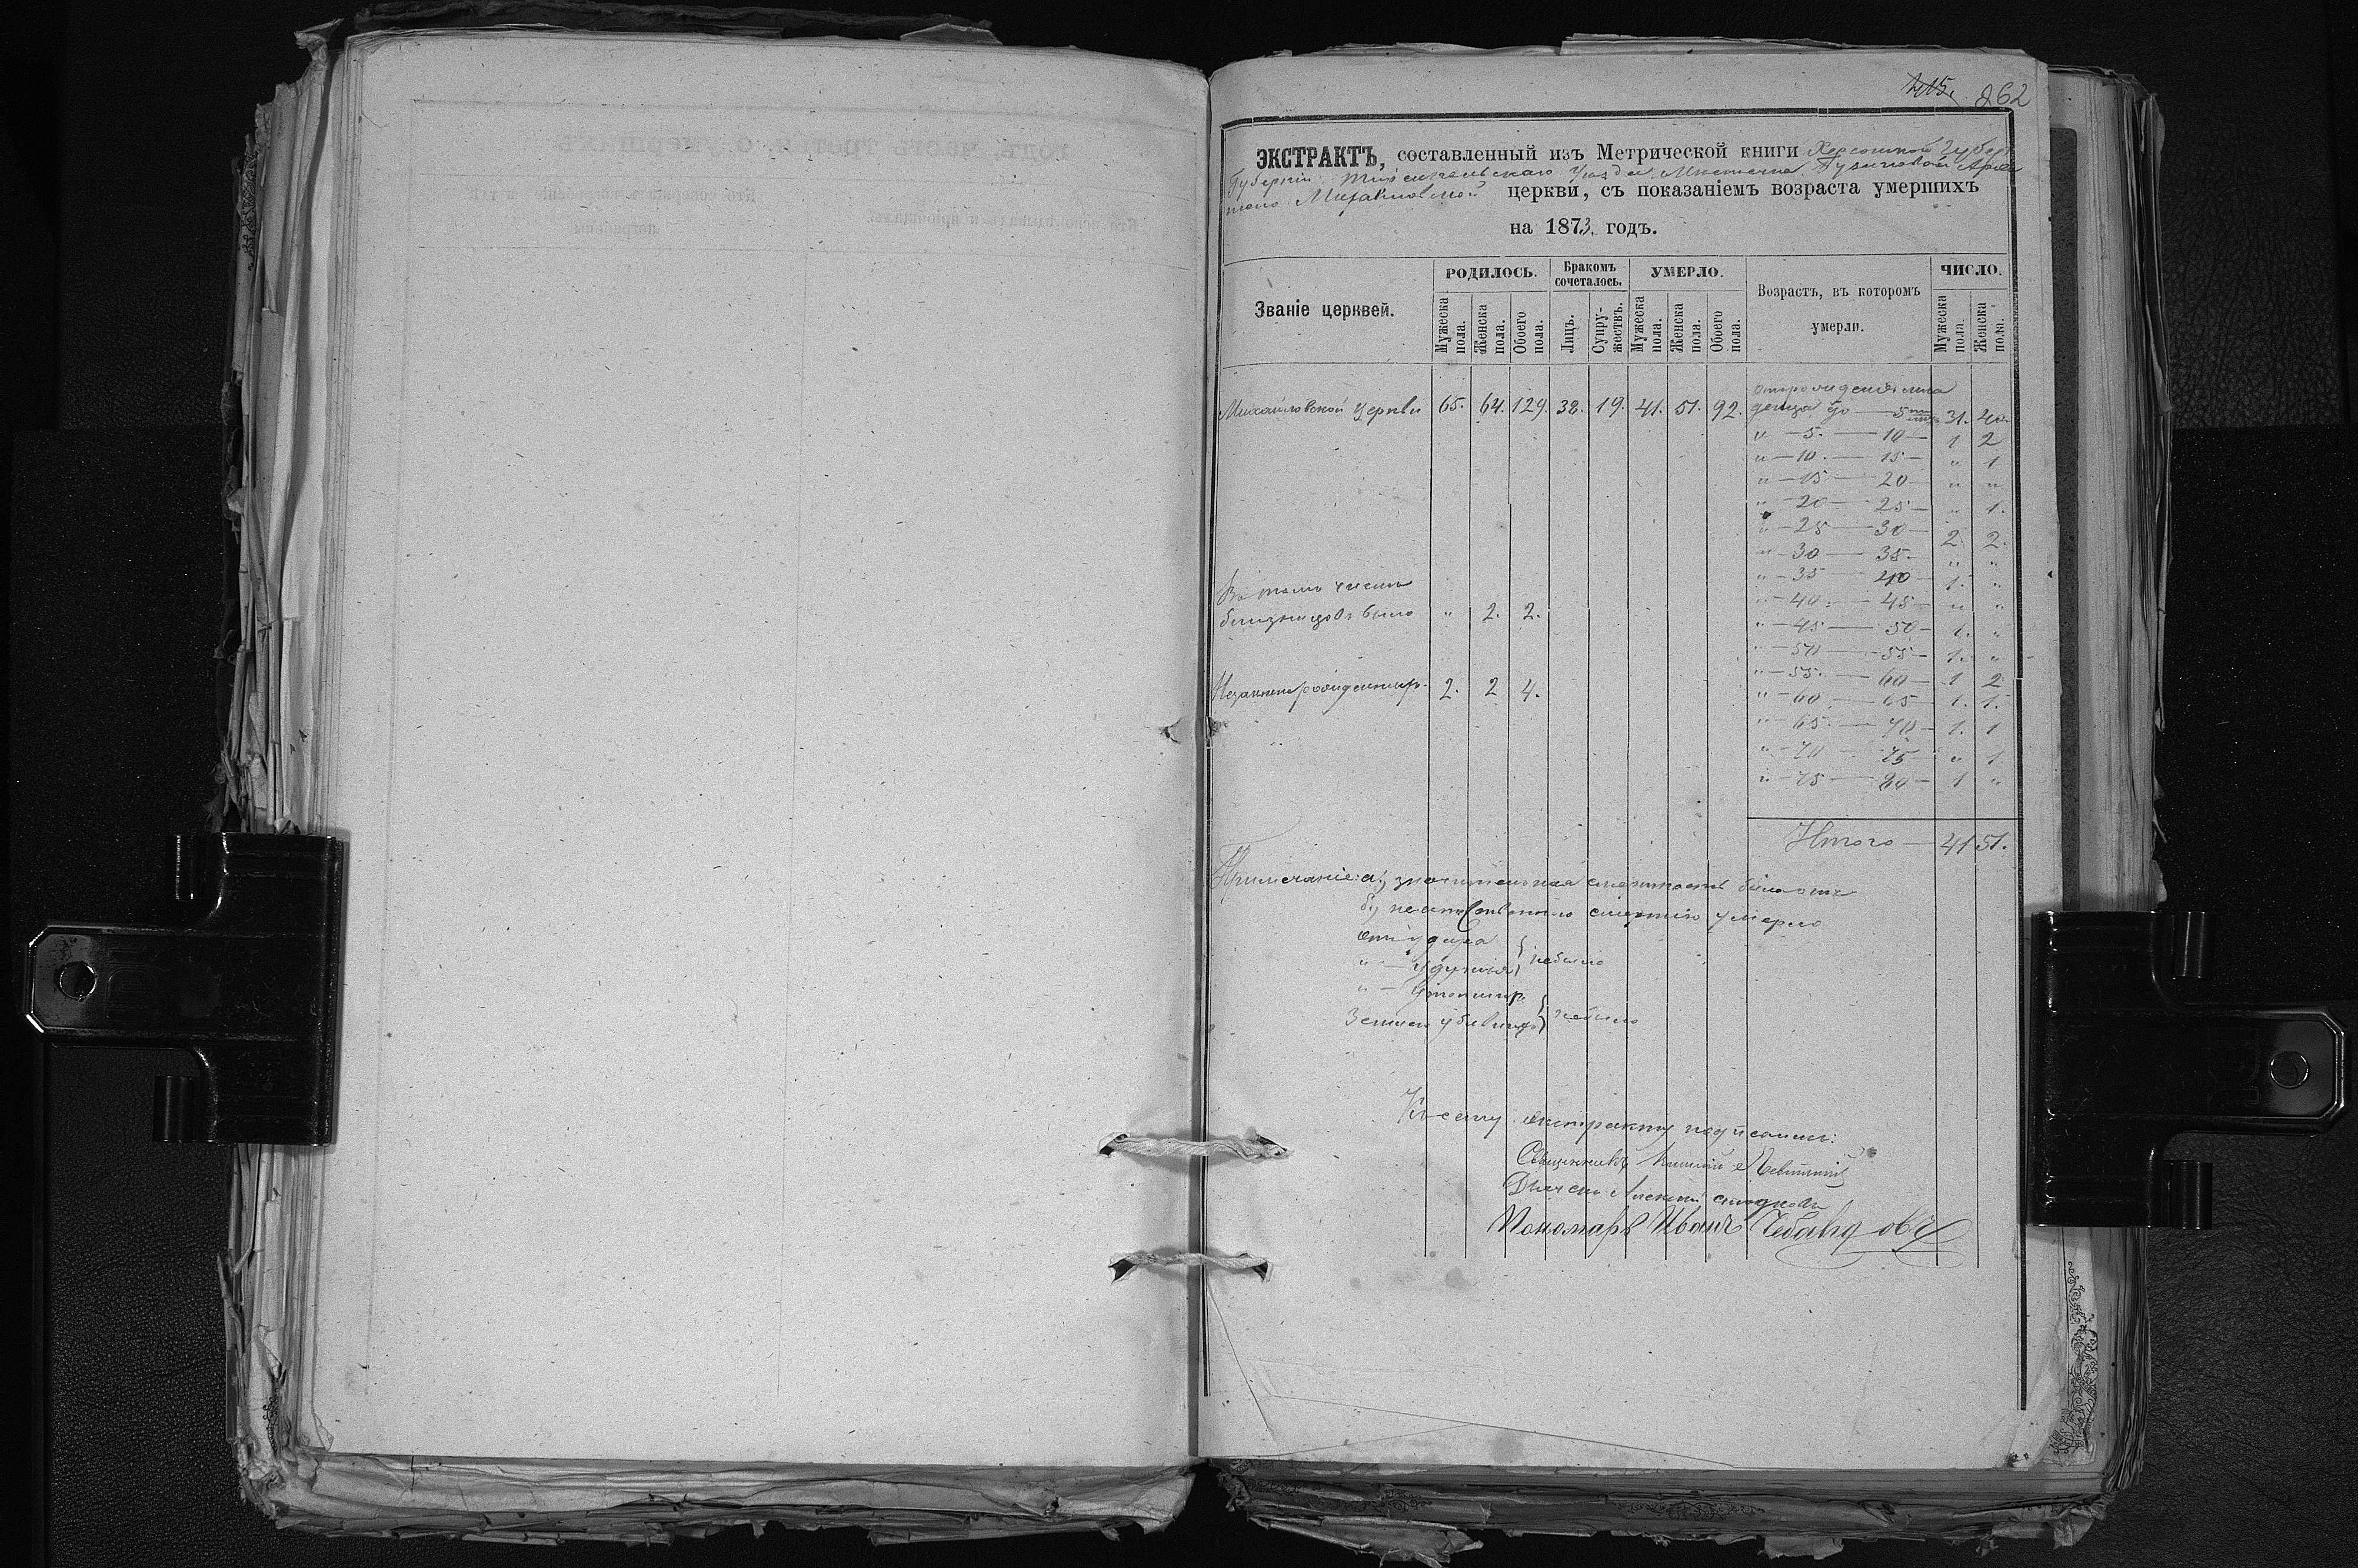 415. 262
ЭКСТРАКТЪ, составленный изъ Метрической книги Херсонской Губер
Губерніи Тираспольскаго Уѣзда Мѣстечка
Михайловской церкви, съ показаніемъ возраста умершихъ
на 1873. годъ.
Званіе церквей.
РОДИЛОСЬ.
Мужеска пола.
Женска пола.
Обоего пола.
Бракомъ сочеталось.
Лицъ.
Супружествъ.
УМЕРЛО.
Мужеска пола.
Женска пола.
Обоего пола.
Возрастъ, въ которомъ умерли.
ЧИСЛО.
Мужеска пола.
Женска пола.
Михайловской Церкви 65. 64. 129. 38. 19. 41. 51. 92.
отъ рожденія мла
денца до — 5 31. 40.
" — 5. — 10 — 1 2
" — 10. — 15 — " 1
" — 15 — 20 — " "
" — 20 — 25 — " 1.
" — 25 — 30 — 2. 2.
" — 30 — 35. — " "
" — 35 — 40 — 1. "
" — 40 — 45 — " "
" — 45 — 50 — 1. "
" — 50 — 55 — 1. "
" — 55. — 60 — 1 2
" — 60 — 65 — 1. 1.
" — 65. — 70 — 1. 1
" — 70 — 75 — " 1
" — 75 — 80 — 1 "
Итого — 41 51.
Въ томъ числѣ
близнецовъ было " 2. 2.
Незаконнорожденныхъ. 2. 2 4.
Примечаніе: а) значительная смертность была отъ
б) неестественною смертію умерло
отъ удара
} небыло
" —
" — Утонувш.
} небыло
Къ сему экстракту подписались:
Священникъ
Дьячекъ Алексѣй
Пономарь Иванъ